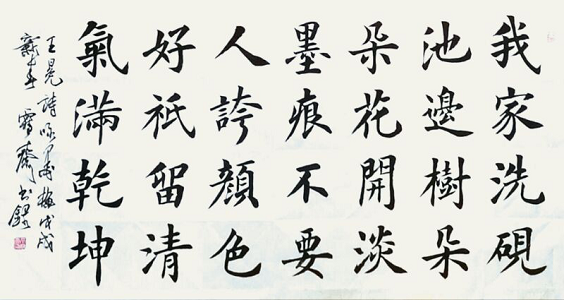 我家洗硯
池邊樹朵
朵花開淡
墨痕不要
人誇顏色
好祇留清
氣滿乾坤
王冕詩 梅戊戌